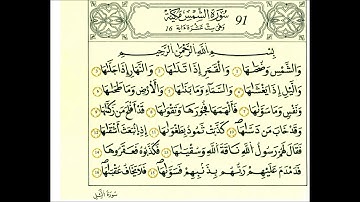 سُورَةُ الشَّمْسِ مَكِّيَّة 91
وَهِيَ سِتَّ عَشْرَةَ ءَايَة 16
بِسْمِ اللَّهِ الرَّحْمَٰنِ الرَّحِيمِ
وَالشَّمْسِ وَضُحَىٰهَا وَالْقَمَرِ إِذَا تَلَىٰهَا وَالنَّهَارِ إِذَا جَلَّىٰهَا
وَالَّيْلِ إِذَا يَغْشَىٰهَا وَالسَّمَآءِ وَمَا بَنَىٰهَا وَالْأَرْضِ وَمَا طَحَىٰهَا
وَنَفْسٍ وَمَا سَوَّىٰهَا فَأَلْهَمَهَا فُجُورَهَا وَتَقْوَىٰهَا قَدْ أَفْلَحَ مَن زَكَّىٰهَا
وَقَدْ خَابَ مَن دَسَّىٰهَا كَذَّبَتْ ثَمُودُ بِطَغْوَىٰهَا إِذِ انبَعَثَ أَشْقَىٰهَا
فَقَالَ لَهُمْ رَسُولُ اللَّهِ نَاقَةَ اللَّهِ وَسُقْيَٰهَا فَكَذَّبُوهُ فَعَقَرُوهَا
فَدَمْدَمَ عَلَيْهِمْ رَبُّهُم بِذَنبِهِمْ فَسَوَّىٰهَا فَلَا يَخَافُ عُقْبَٰهَا
سُورَةُ الَّيْلِ